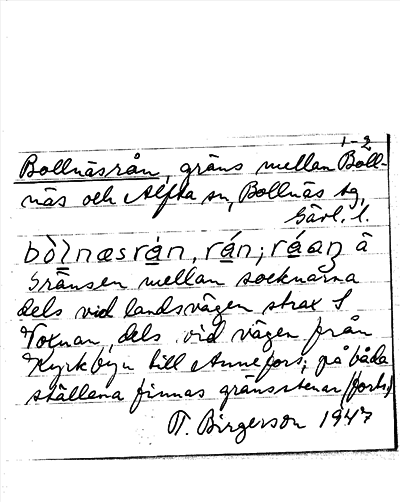 1-2
Bollnäsrån, gräns mellan Boll-
näs och Alfta sn, Bollnäs sg,
Gävl. l.
bòlnæsrán, rán; ráaꞑ å
Gränsen mellan socknarna
dels vid landsvägen strax S
Voxnan, dels vid vägen från
Kyrkbyn till Annefors; på båda
ställena finnas gränsstenar (forts.)
T. Birgerson 1947